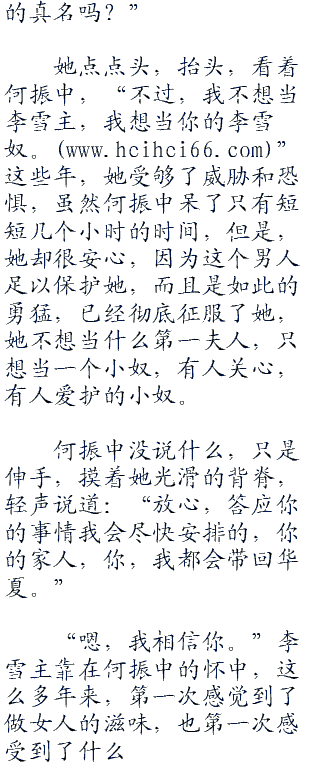 的真名吗？”
她点点头，抬头，看着
何振中，“不过，我不想当
李雪主，我想当你的李雪
奴。(www.hcihci66.com)”
这些年，她受够了威胁和恐
惧，虽然何振中呆了只有短
短几个小时的时间，但是，
她却很安心，因为这个男人
足以保护她，而且是如此的
勇猛，已经彻底征服了她，
她不想当什么第一夫人，只
想当一个小奴，有人关心，
有人爱护的小奴。
何振中没说什么，只是
伸手，摸着她光滑的背脊，
轻声说道：“放心，答应你
的事情我会尽快安排的，你
的家人，你，我都会带回华
夏。”
“嗯，我相信你。”李
雪主靠在何振中的怀中，这
么多年来，第一次感觉到了
做女人的滋味，也第一次感
受到了什么